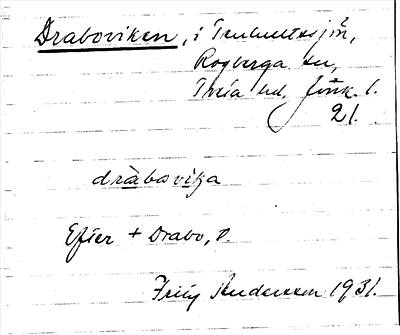 Draboviken, i Tenhultasjön,
Rogberga sn,
Tveta hd. Jönk. l.
21.
dràbovika
Efter + Drabo, s.
Fritz Andersson 1931.